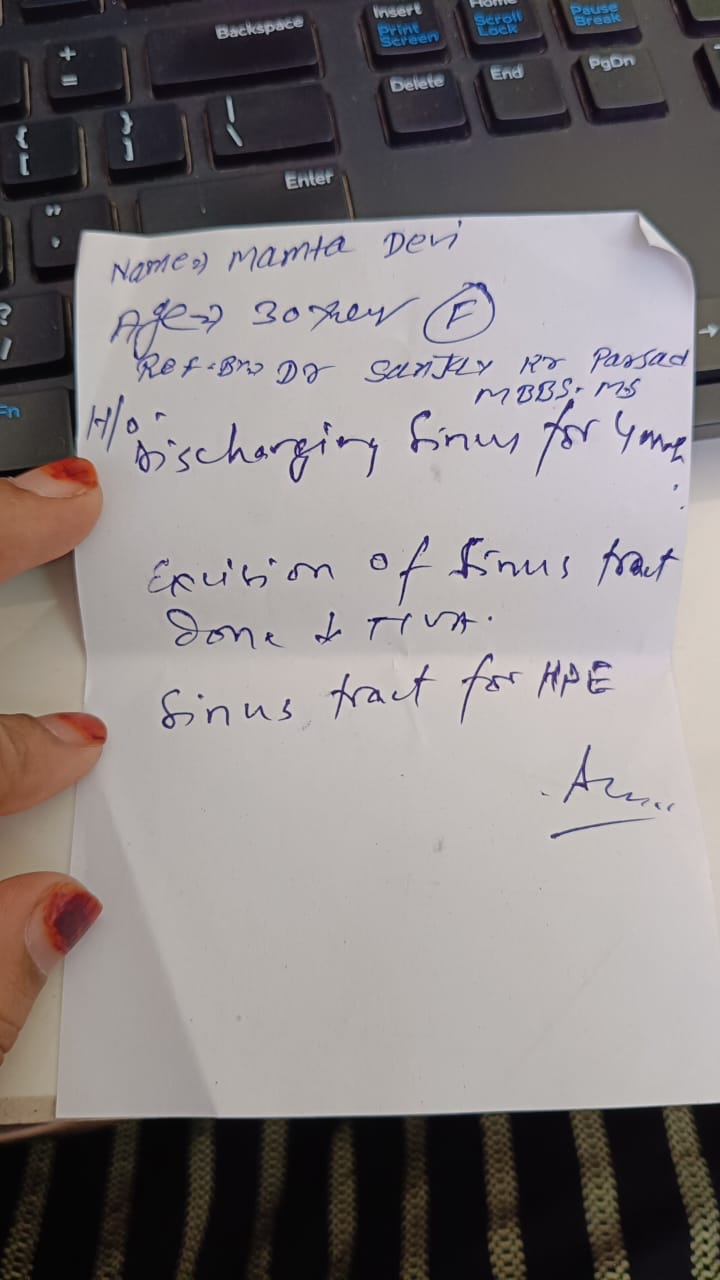 Backspace
Insert
Print
Screen
Home
Scroll
Lock
Pause
Break
Delete
End
PgDn
+
=
{
[
}
]
|
\
Enter
"
'
?
/
Fn
→
Name⇒ Mamta Devi
Age⇒ 30 (F)
Ref-By⇒ Dr Kr Parsad
MBBS. MS
H/o -
Discharging Sinus for 4
Excision of Sinus tract
done TIVA.
Sinus tract for HPE